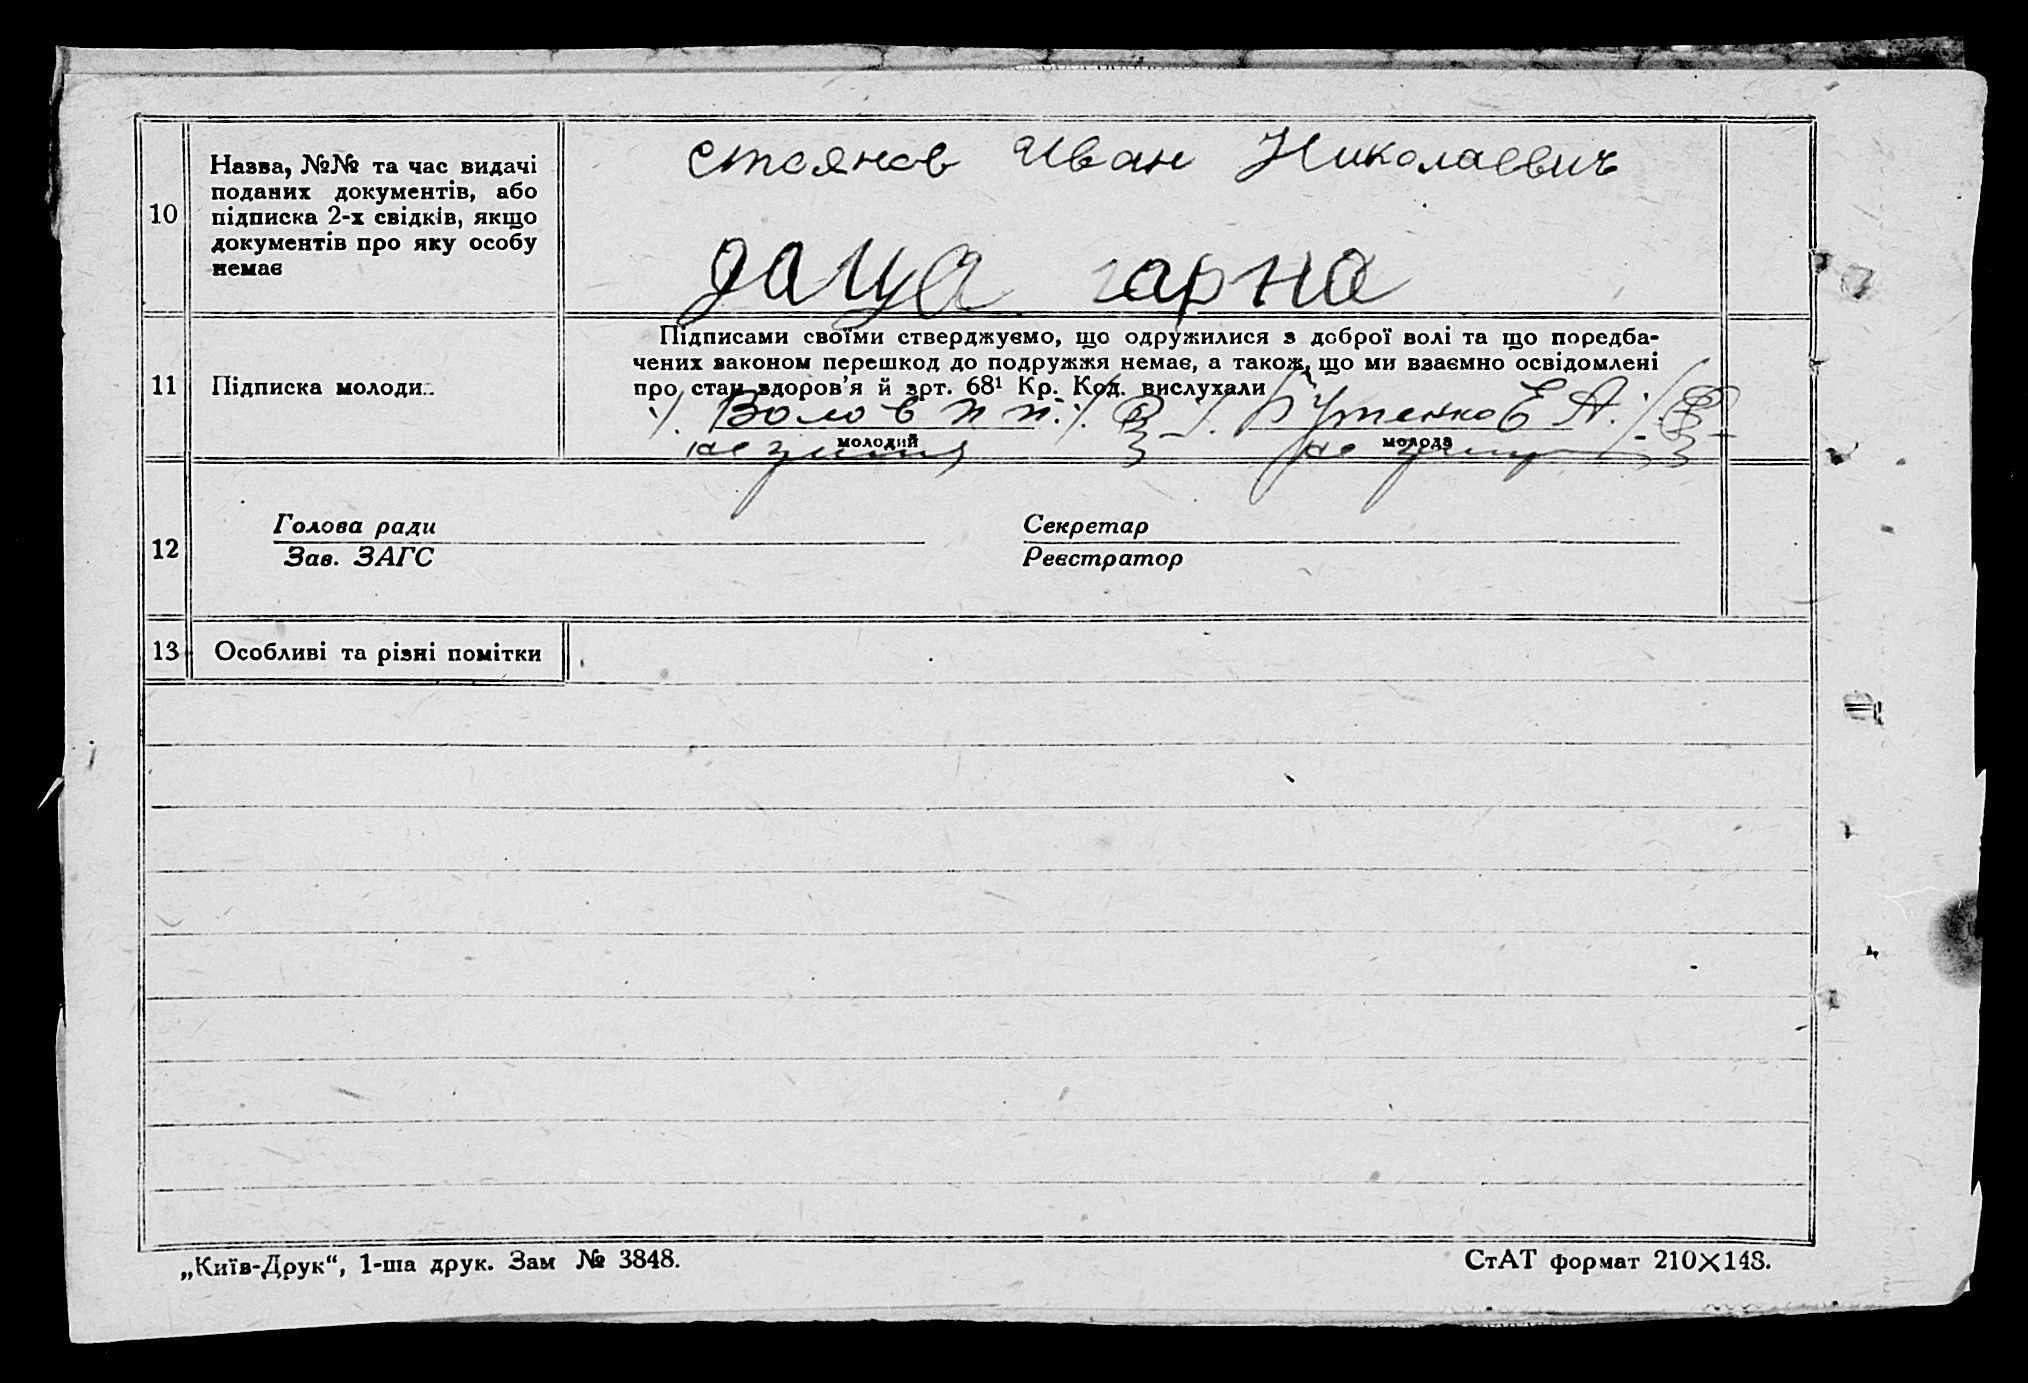 10
Назва, №№ та час видачі
поданих документів, або
підписка 2-х свідків, якщо
документів про яку особу
немає
Стоянов Иван Николаевич
гарна
11
Підписка молоди..
Підписами своїми стверджуємо, що одружилися з доброї волі та що поредба-
чених законом перешкод до подружжя немає, а також, що ми взаємно освідомлені
про стан здоров'я й арт. 68¹ Кр. Код. вислухали
Волов П П. Бутенко Е А.
молодий молода
не не
12
Голова ради
Зав. ЗАГС
Секретар
Реєстратор
13
Особливі та різні помітки
„Київ-Друк“, 1-ша друк. Зам № 3848.
СтАТ формат 210×148.